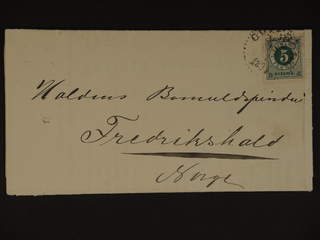 5
Haldens Bomuldspinderi
Fredrikshald
Norge